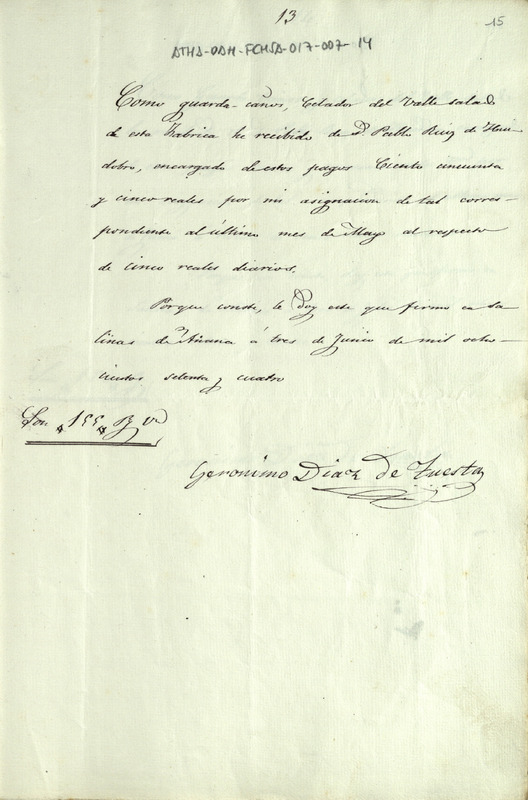 13
15
ATHA-DAH-FCHSA-017-007-14
Como guarda-caños, Celador del Valle salado
de esta Fabrica he recibido de Dn. Pablo Ruiz de Hui-
dobro, encargado de estos pagos Ciento cincuenta
y cinco reales por mi asignacion de tal corres-
pondiente al último mes de Mayo al respecto
de cinco reales diarios.
Porque conste, le doy este que firmo en Sa-
linas de Añana á tres de Junio de mil ocho-
cientos setenta y cuatro
Son 155 R. vn
Geronimo Diaz de Tuesta